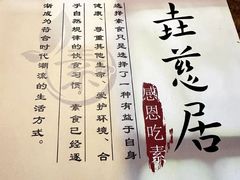 垚慈居
感恩吃素
选择素食只是选择了一种有益于自身
健康、尊重其他生命、爱护环境、合
乎自然规律的饮食习惯。素食已经逐
渐成为符合时代潮流的生活方式。